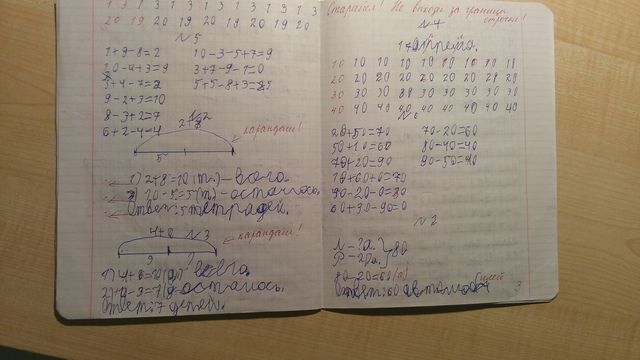 1 3 1 3 1 3 1 3 1 3 1 3
20 19 20 19 20 19 20 19 20 19 20
№ 5
1+9-8=2
10-4+3=9
3+4-7=
9-2+3=10
8-3+2=7
6+2-4=4
10-3-5+7=9
3+7-9-1=0
5+5-8+3=5
№2
2+8
карандаш!
5
1) 2+8=10 (т.) - всего.
2) 10-5=5 (т.) - осталось.
Ответ: 5 тетрадей.
4+6
№ 3
карандаш!
3
1) 4+6=10 всего.
2) 10-3=7 осталось.
Ответ: 7 детей.
Старайся! Не выходи за границы строчки!
№ 4
17 апреля.
10 10 10 10 10 10 10 10 10
20 20 20 20 20 20 20 20 20
30 30 30 30 30 30 30 30 30
40 40 40 40 40 40 40 40 40
№
20+50=70
50+10=60
70+20=90
10+60+0=70
90-20-0=
60+30-90=0
70-20=60
80-40=40
90-50=40
№ 2
Л - ?а.
Р - 20а. } 80
80-20=60 (а)
Ответ: 60 автомобилей
3